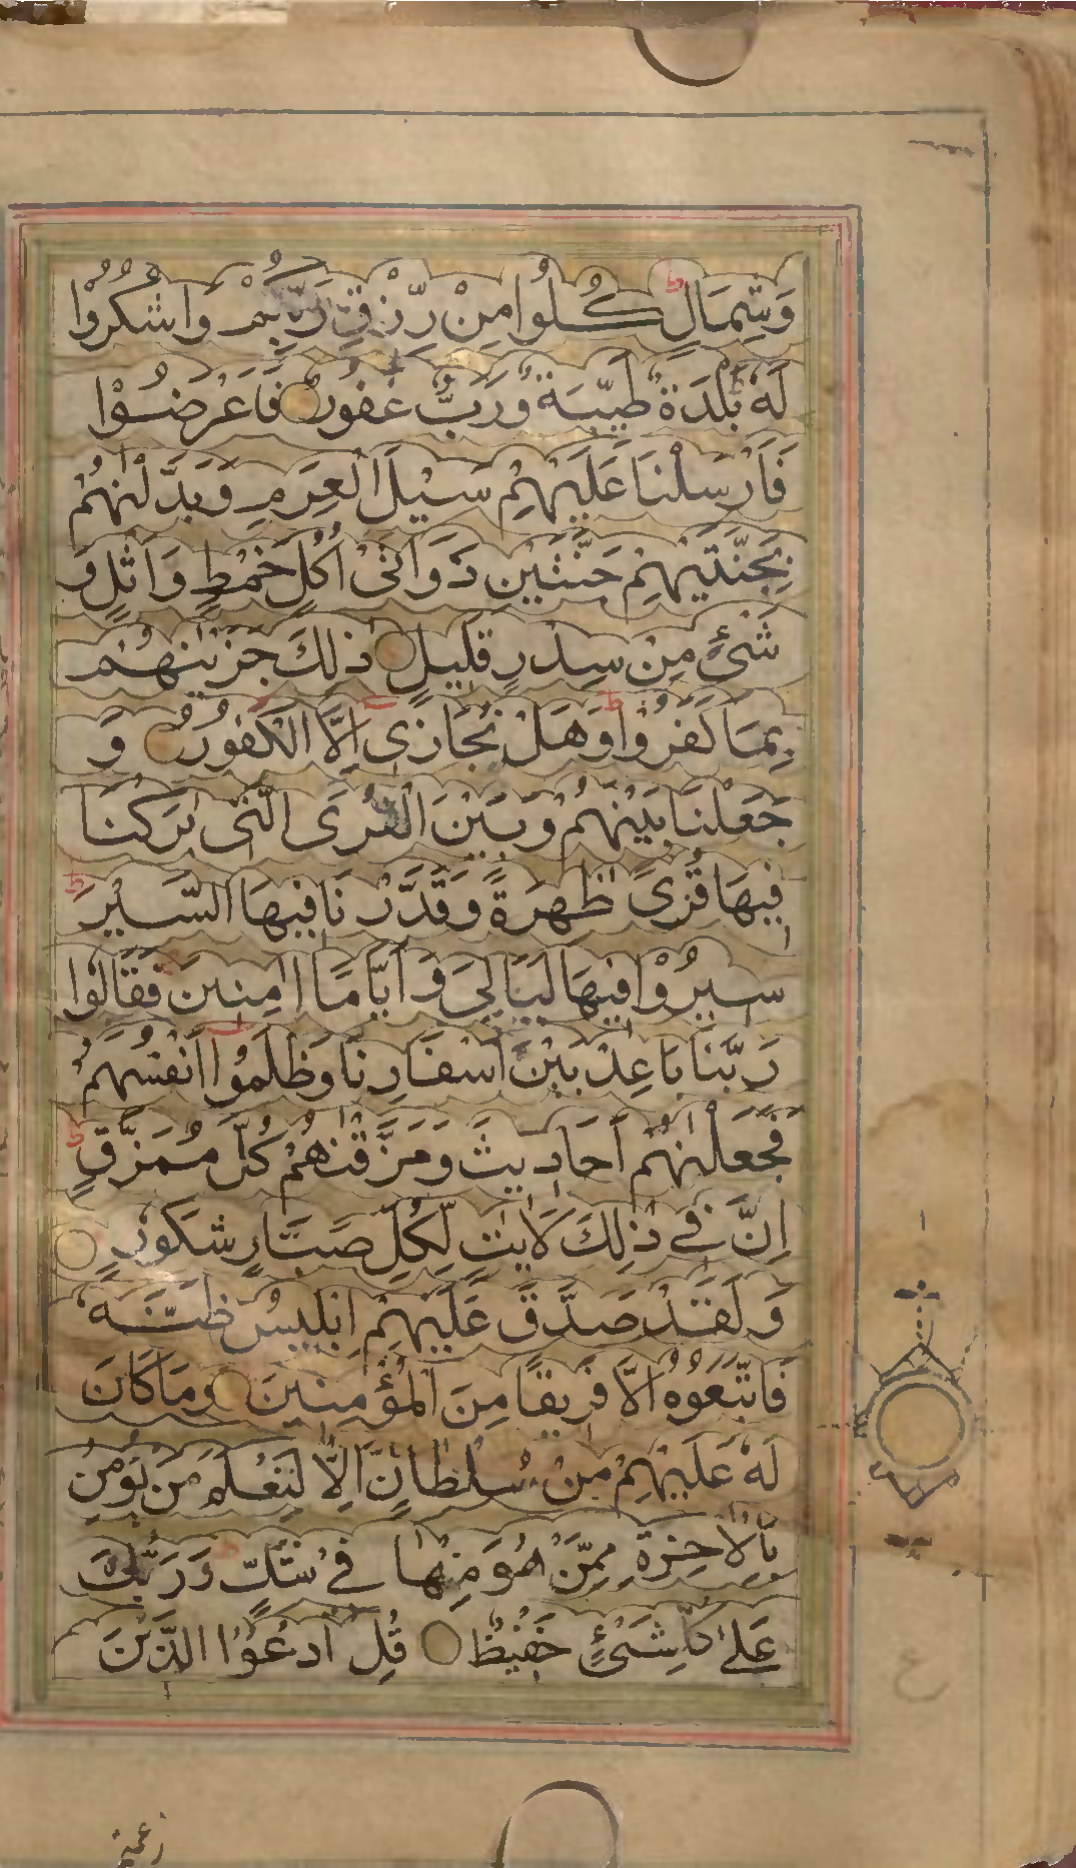 وَشِمَالٍ ط كُلُوْا مِنْ رِّزْقِ رَبِّكُمْ وَاشْكُرُوْا
لَهٗ ط بَلْدَةٌ طَيِّبَةٌ وَّرَبٌّ غَفُوْرٌ فَاَعْرَضُوْا
فَاَرْسَلْنَا عَلَيْهِمْ سَيْلَ الْعَرِمِ وَبَدَّلْنٰهُمْ
بِجَنَّتَيْهِمْ جَنَّتَيْنِ ذَوَاتَىْ اُكُلٍ خَمْطٍ وَّاَثْلٍ وَّ
شَىْءٍ مِنْ سِدْرٍ قَلِيْلٍ ذٰلِكَ جَزَيْنٰهُمْ
بِمَا كَفَرُوْا ط وَهَلْ نُجَازِىْ اِلَّا الْكَفُوْرَ وَ
جَعَلْنَا بَيْنَهُمْ وَبَيْنَ الْقُرَى الَّتِىْ بٰرَكْنَا
فِيْهَا قُرًى ظَاهِرَةً وَّقَدَّرْنَا فِيْهَا السَّيْرَ ط
سِيْرُوْا فِيْهَا لَيَالِىَ وَاَيَّامًا اٰمِنِيْنَ فَقَالُوْا
رَبَّنَا بَاعِدْ بَيْنَ اَسْفَارِنَا وَظَلَمُوْا اَنْفُسَهُمْ
فَجَعَلْنٰهُمْ اَحَادِيْثَ وَمَزَّقْنٰهُمْ كُلَّ مُمَزَّقٍ ط
اِنَّ فِىْ ذٰلِكَ لَاٰيٰتٍ لِّكُلِّ صَبَّارٍ شَكُوْرٍ
وَلَقَدْ صَدَّقَ عَلَيْهِمْ اِبْلِيْسُ ظَنَّهٗ
فَاتَّبَعُوْهُ اِلَّا فَرِيْقًا مِنَ الْمُؤْمِنِيْنَ وَمَا كَانَ
لَهٗ عَلَيْهِمْ مِنْ سُلْطَانٍ اِلَّا لِنَعْلَمَ مَنْ يُؤْمِنُ
بِالْاٰخِرَةِ مِمَّنْ هُوَ مِنْهَا فِىْ شَكٍّ ط وَرَبُّكَ
عَلٰى كُلِّ شَىْءٍ حَفِيْظٌ قُلِ ادْعُوا الَّذِيْنَ
ع